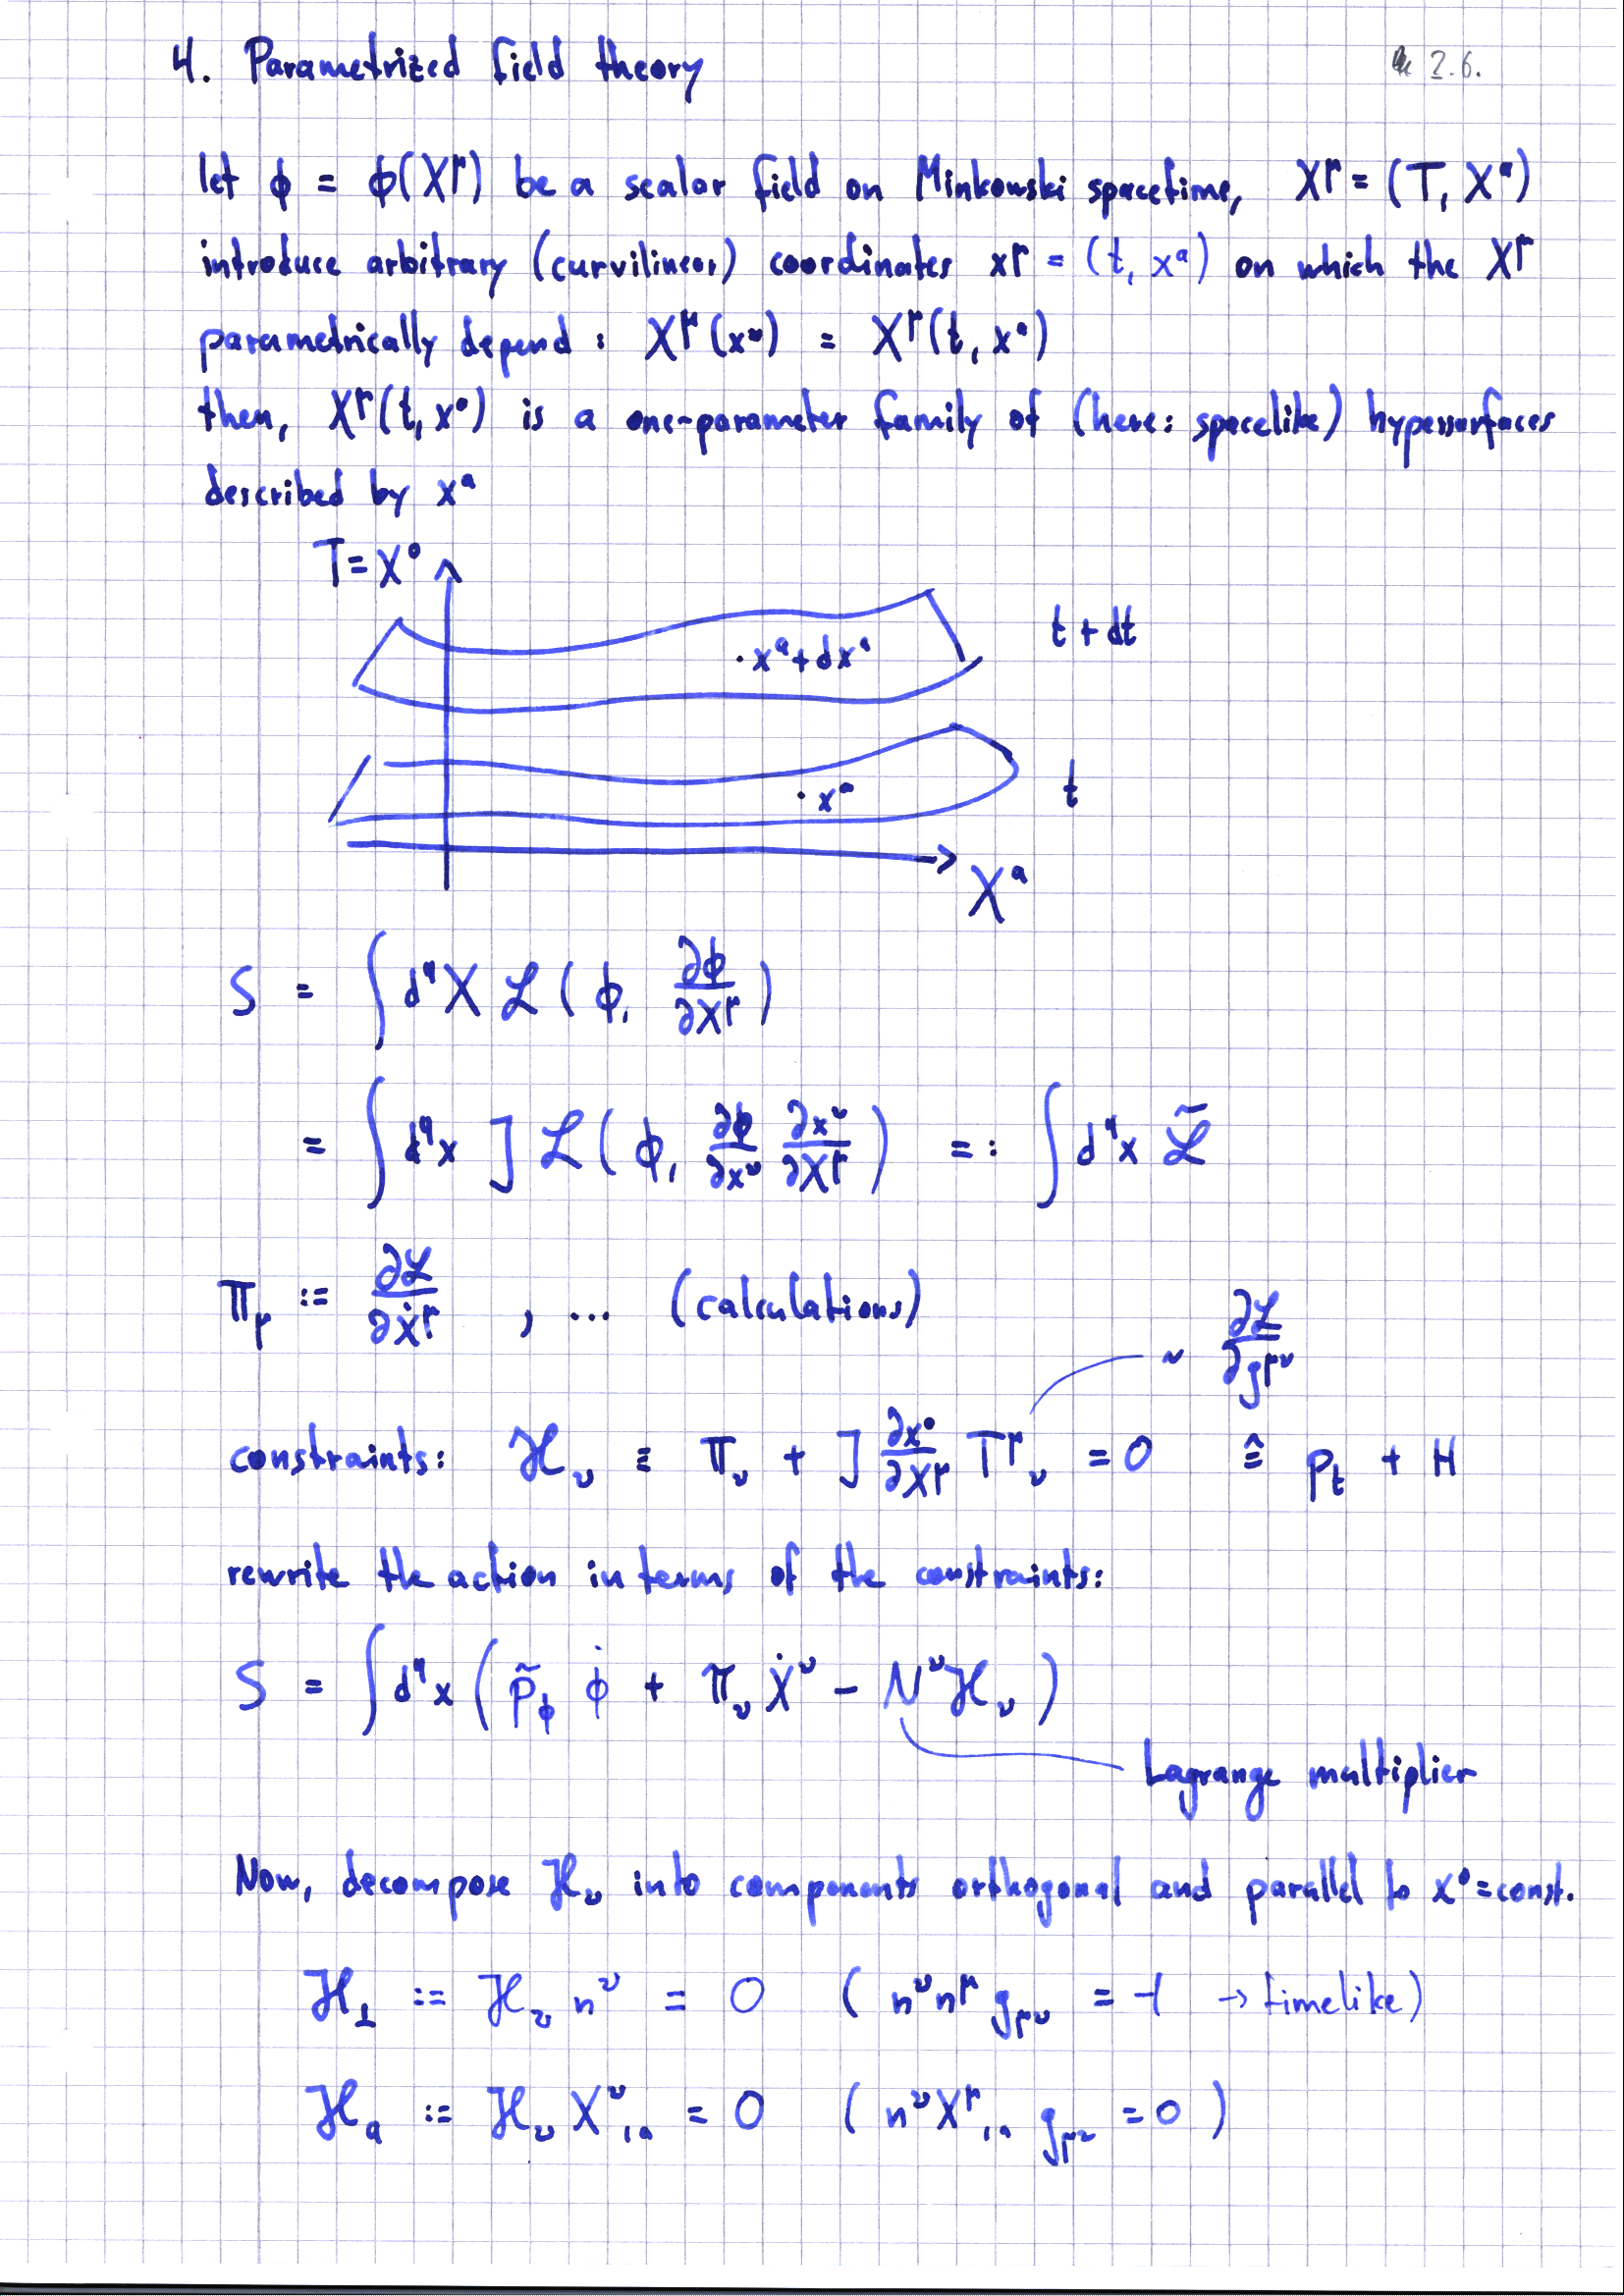 4. Parametrized field theory
2.6.
let ϕ = ϕ(X^μ) be a scalar field on Minkowski spacetime, X^μ = (T, X^a)
introduce arbitrary (curvilinear) coordinates x^μ = (t, x^a) on which the X^μ
parametrically depend: X^μ(x^ν) = X^μ(t, x^a)
then, X^μ(t, x^a) is a one-parameter family of (here: spacelike) hypersurfaces
described by x^a
T = X^0
t + dt
· x^a + dx^a
· x^a
t
X^a
S = ∫ d^4X ℒ(ϕ, ∂ϕ/∂X^μ)
= ∫ d^4x J ℒ(ϕ, ∂ϕ/∂x^ν ∂x^ν/∂X^μ) =: ∫ d^4x ℒ̃
Π_μ := ∂ℒ/∂Ẋ^μ , ... (calculations)
~ ∂ℒ/∂g^μν
constraints: ℋ_ν ≡ Π_ν + J ∂x^0/∂X^μ T^μ_ν = 0 ≙ p_t + H
rewrite the action in terms of the constraints:
S = ∫ d^4x (p̃_ϕ ϕ̇ + Π_ν Ẋ^ν - N^ν ℋ_ν)
Lagrange multiplier
Now, decompose ℋ_ν into components orthogonal and parallel to x^0 = const.
ℋ_⊥ := ℋ_ν n^ν = 0 (n^ν n^μ g_μν = -1 → timelike)
ℋ_a := ℋ_ν X^ν_,a = 0 (n^ν X^μ_,a g_μν = 0)